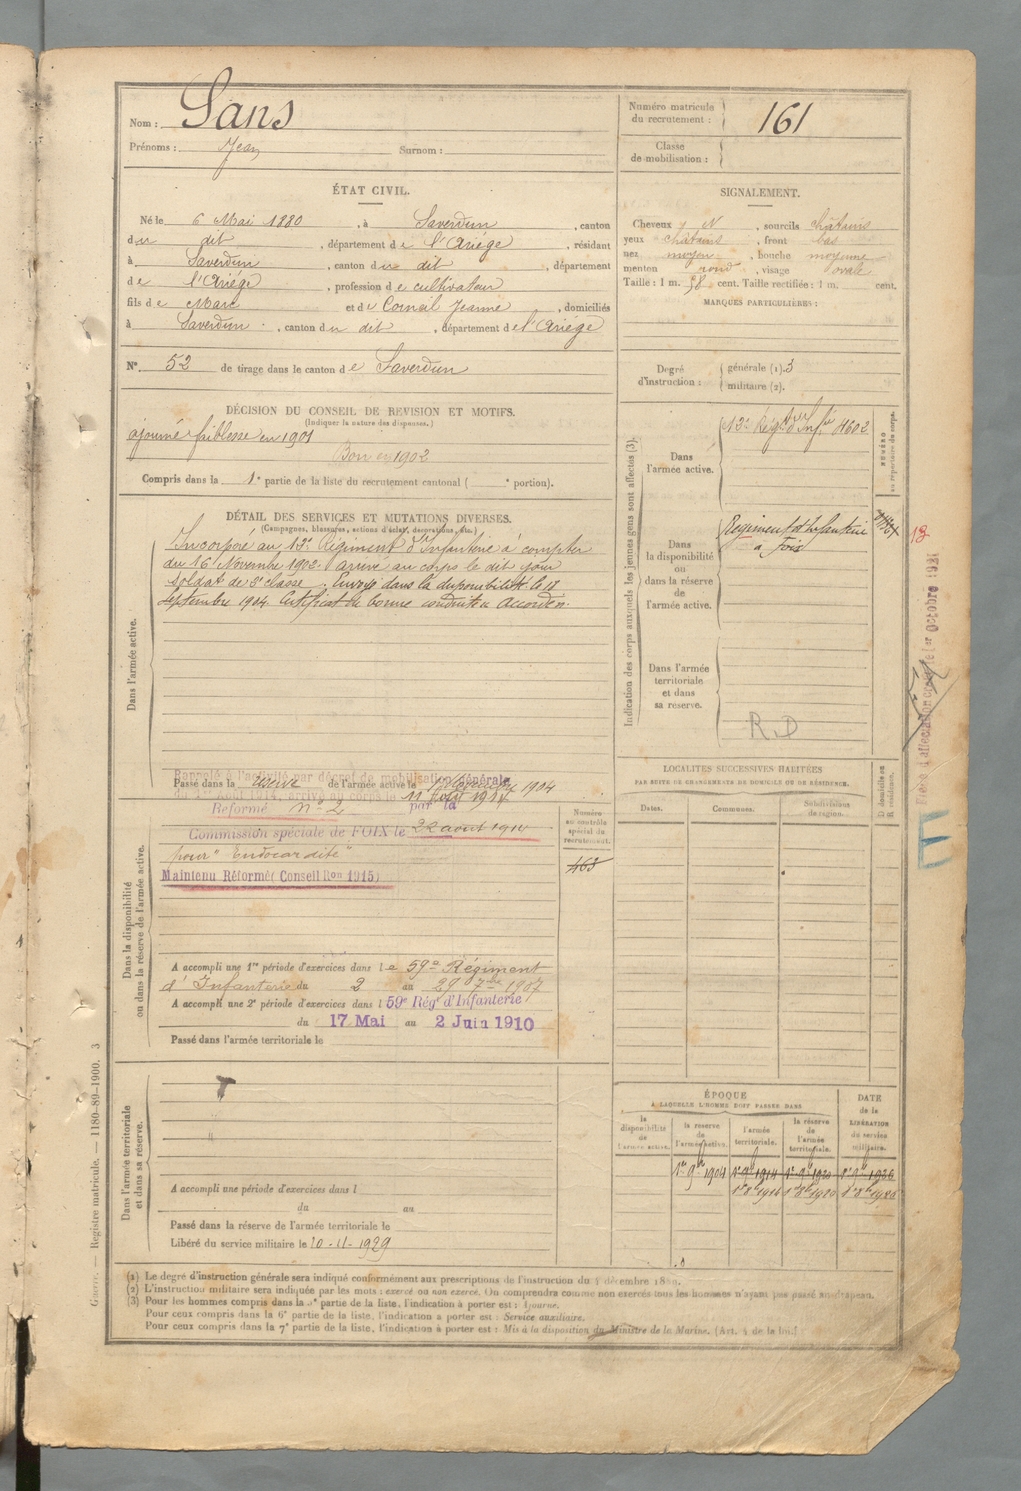 Nom : Sans
Prénoms : Jean Surnom :
Numéro matricule du recrutement : 161
Classe de mobilisation :
ÉTAT CIVIL.
Né le 6 Mai 1880, à Saverdun, canton
du dit, département de l'Ariège, résidant
à Saverdun, canton du dit, département
de l'Ariège, profession de cultivateur
fils de Marc et de Corneil Jeanne, domiciliés
à Saverdun, canton du dit, département de l'Ariège
N° 52 de tirage dans le canton de Saverdun
SIGNALEMENT.
Cheveux N, sourcils châtains
yeux châtains, front bas
nez moyen, bouche moyenne
menton rond, visage ovale
Taille : 1 m. 58 cent. Taille rectifiée : 1 m. cent.
MARQUES PARTICULIÈRES :
Degré d'instruction : générale (1). 3
militaire (2).
DÉCISION DU CONSEIL DE REVISION ET MOTIFS.
(Indiquer la nature des dispenses.)
ajourné faiblesse en 1901
Bon en 1902
Compris dans la 1e partie de la liste du recrutement cantonal ( e portion).
DÉTAIL DES SERVICES ET MUTATIONS DIVERSES.
(Campagnes, blessures, actions d'éclat, décorations, etc.)
Dans l'armée active.
Incorporé au 12e Régiment d'Infanterie à compter
du 16 Novembre 1902. arrivé au corps le dit jour
soldat de 2e classe. Envoyé dans la disponibilité le 18
septembre 1904. Certificat de bonne conduite accordé.
Rappelé à l'activité par décret de mobilisation générale
Passé dans la réserve de l'armée active le 1904
du 1er Août 1914, arrivé au corps le 11 Août 1914
Dans la disponibilité ou dans la réserve de l'armée active.
Réformé n° 2 par la
Commission spéciale de FOIX le 22 août 1914
pour "Endocardite"
Maintenu Réformé (Conseil Ron 1915)
A accompli une 1re période d'exercices dans le 59e Régiment
d'Infanterie du 2 au 29 7bre 1907
A accompli une 2e période d'exercices dans l 59e Rég. d'Infanterie
du 17 Mai au 2 Juin 1910
Passé dans l'armée territoriale le
Numéro au contrôle spécial du recrutement.
463
Dans l'armée territoriale et dans sa réserve.
T
A accompli une période d'exercices dans l
du au
Passé dans la réserve de l'armée territoriale le
Libéré du service militaire le 10-11-1929
Indication des corps auxquels les jeunes gens sont affectés (3).
NUMÉRO au répertoire du corps.
Dans l'armée active.
12e Régt d'Infie 4602
Dans la disponibilité ou dans la réserve de l'armée active.
Régiment d'Infanterie
à Foix
Dans l'armée territoriale et dans sa réserve.
R.D
LOCALITÉS SUCCESSIVES HABITÉES
PAR SUITE DE CHANGEMENTS DE DOMICILE OU DE RÉSIDENCE.
Dates. Communes. Subdivisions de région.
D domicile ou R résidence.
ÉPOQUE
A LAQUELLE L'HOMME DOIT PASSER DANS
la disponibilité de l'armée active.
la réserve de l'armée active.
l'armée territoriale.
la réserve de l'armée territoriale.
DATE de la LIBÉRATION du service militaire.
1er 9bre 1904 1er 9bre 1914 1er 9bre 1920 1er 9bre 1926
Octobre 1921
E
Guerre. — Registre matricule. — 1180-89-1900. 3
(1) Le degré d'instruction générale sera indiqué conformément aux prescriptions de l'instruction du 4 décembre 1889.
(2) L'instruction militaire sera indiquée par les mots : exercé ou non exercé. On comprendra comme non exercés tous les hommes n'ayant pas passé au drapeau.
(3) Pour les hommes compris dans la 5e partie de la liste, l'indication à porter est : Ajourné.
Pour ceux compris dans la 6e partie de la liste, l'indication à porter est : Service auxiliaire.
Pour ceux compris dans la 7e partie de la liste, l'indication à porter est : Mis à la disposition du Ministre de la Marine. (Art. 4 de la loi.)